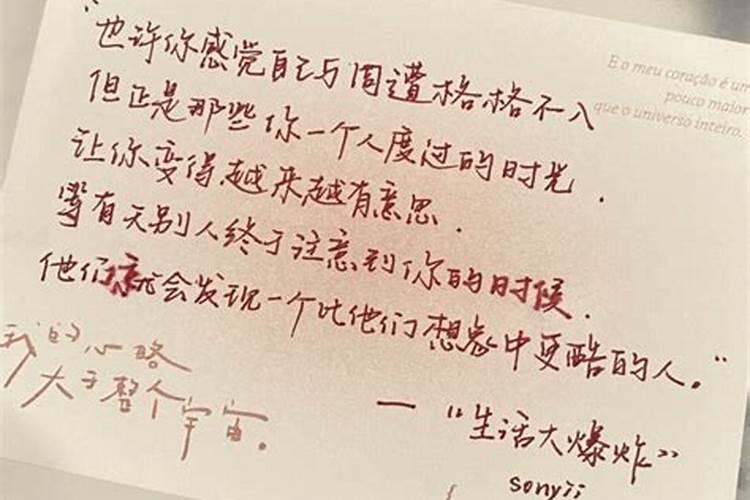 E o meu coração é um
pouco maior
que o universo inteiro.
“也许你感觉自己与周遭格格不入
但正是那些你一个人度过的时光.
让你变得越来越有意思.
等有天别人终于注意到你的时候.
他们就会发现一个比他们想象中更酷的人。”
我的心略
大于整个宇宙。
— “生活大爆炸”
sonyii